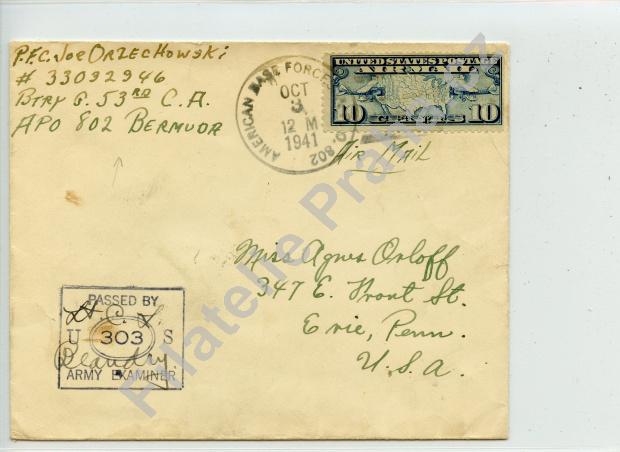 P.F.C. Joe Orzechowski
# 33092946
Btry G. 53RD C.A.
APO 802 Bermuda
AMERICAN BASE FORCES
OCT
3
12 M
1941
802
UNITED STATES POSTAGE
AIR MAIL
10 CENTS 10
Air Mail
Miss Agnes Orloff
347 E. Front St.
Erie, Penn.
U.S.A.
PASSED BY
U 303 S
ARMY EXAMINER
Filatelie Praha.cz